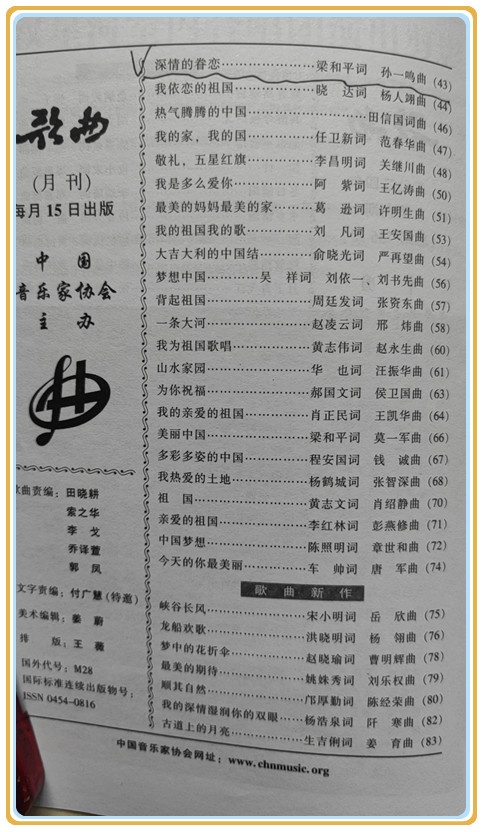 歌曲
(月刊)
每月15日出版
中国
音乐家协会
主办
歌曲责编：田晓耕
索之华
李戈
乔译萱
郭凤
文字责编：付广慧(特邀)
美术编辑：姜蔚
排版：王薇
国外代号：M28
国际标准连续出版物号：
ISSN 0454–0816
深情的眷恋……………………梁和平词 孙一鸣曲 (43)
我依恋的祖国……………………晓达词 杨人翊曲 (44)
热气腾腾的中国……………………田信国词曲 (46)
我的家，我的国……………………任卫新词 范春华曲 (47)
敬礼，五星红旗……………………李昌明词 关继川曲 (48)
我是多么爱你……………………阿紫词 王亿涛曲 (50)
最美的妈妈最美的家………葛逊词 许明生曲 (51)
我的祖国我的歌……………………刘凡词 王安国曲 (53)
大吉大利的中国结…………俞晓光词 严再望曲 (54)
梦想中国…………吴祥词 刘依一、刘书先曲 (56)
背起祖国……………………周廷发词 张资东曲 (57)
一条大河……………………赵凌云词 邢炜曲 (58)
我为祖国歌唱……………………黄志伟词 赵永生曲 (60)
山水家园……………………华也词 汪振华曲 (61)
为你祝福……………………郝国文词 侯卫国曲 (63)
我的亲爱的祖国……………………肖正民词 王凯华曲 (64)
美丽中国……………………梁和平词 莫一军曲 (66)
多彩多姿的中国……………………程安国词 钱诚曲 (67)
我热爱的土地……………………杨鹤城词 张智深曲 (68)
祖国……………………黄志文词 肖绍静曲 (70)
亲爱的祖国……………………李红林词 彭燕修曲 (71)
中国梦想……………………陈照明词 章世和曲 (72)
今天的你最美丽……………………车帅词 唐军曲 (74)
歌曲新作
峡谷长风……………………宋小明词 岳欣曲 (75)
龙船欢歌……………………洪晓明词 杨翎曲 (76)
梦中的花折伞……………………赵晓瑜词 曹明辉曲 (78)
最美的期待……………………姚姝秀词 刘乐权曲 (79)
顺其自然……………………邝厚勤词 陈经荣曲 (80)
我的深情湿润你的双眼……杨浩泉词 阡寒曲 (82)
古道上的月亮……………………生吉俐词 姜育曲 (83)
中国音乐家协会网址：www.chnmusic.org